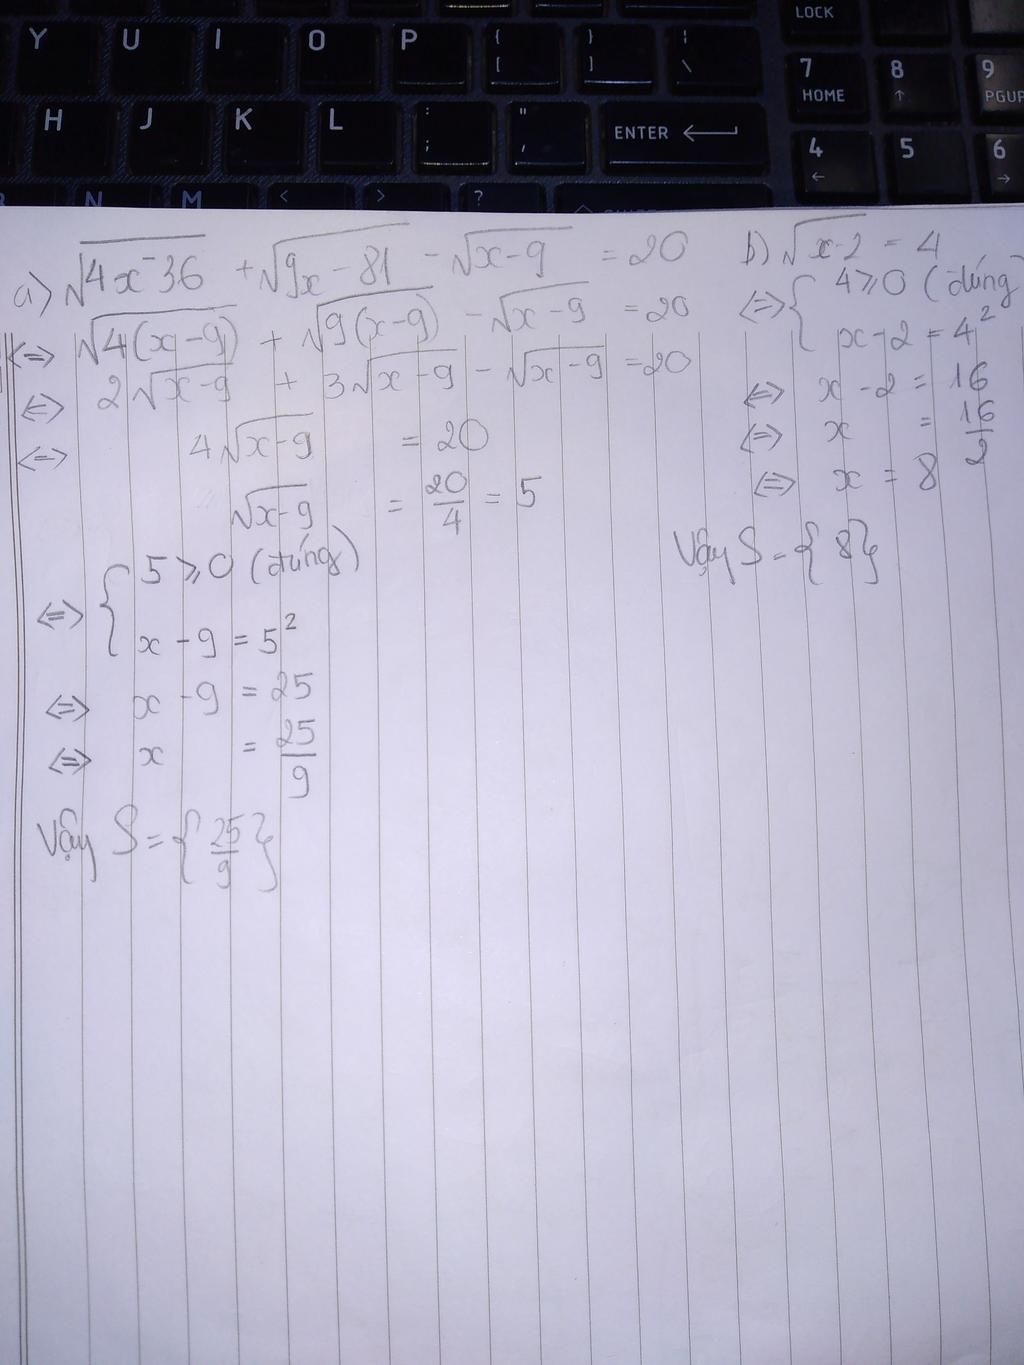 LOCK
Y U I O P { [ } ] ¦ \
7 HOME 8 ↑ 9 PGUP
H J K L : ; " ' ENTER ←
4 ← 5 6 →
N M < > ?
a) √(4x-36) + √(9x-81) - √(x-9) = 20
⇔ √(4(x-9)) + √(9(x-9)) - √(x-9) = 20
⇔ 2√(x-9) + 3√(x-9) - √(x-9) = 20
⇔ 4√(x-9) = 20
√(x-9) = 20/4 = 5
⇔ { 5 ⩾ 0 (đúng)
x - 9 = 5²
⇔ x - 9 = 25
⇔ x = 25/9
Vậy S = {25/9}
b) √(x-2) = 4
⇔ { 4 ⩾ 0 (đúng)
x - 2 = 4²
⇔ x - 2 = 16
⇔ x = 16/2
⇔ x = 8
Vậy S = {8}